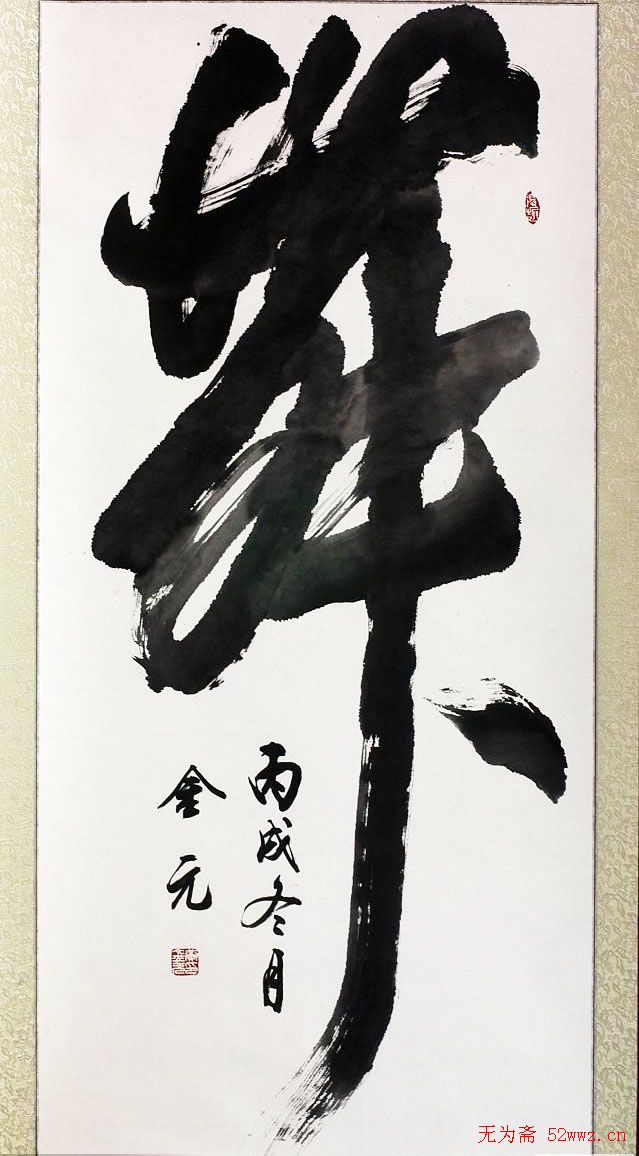 舞
丙戌冬月
金元
无为斋 52wwz.cn